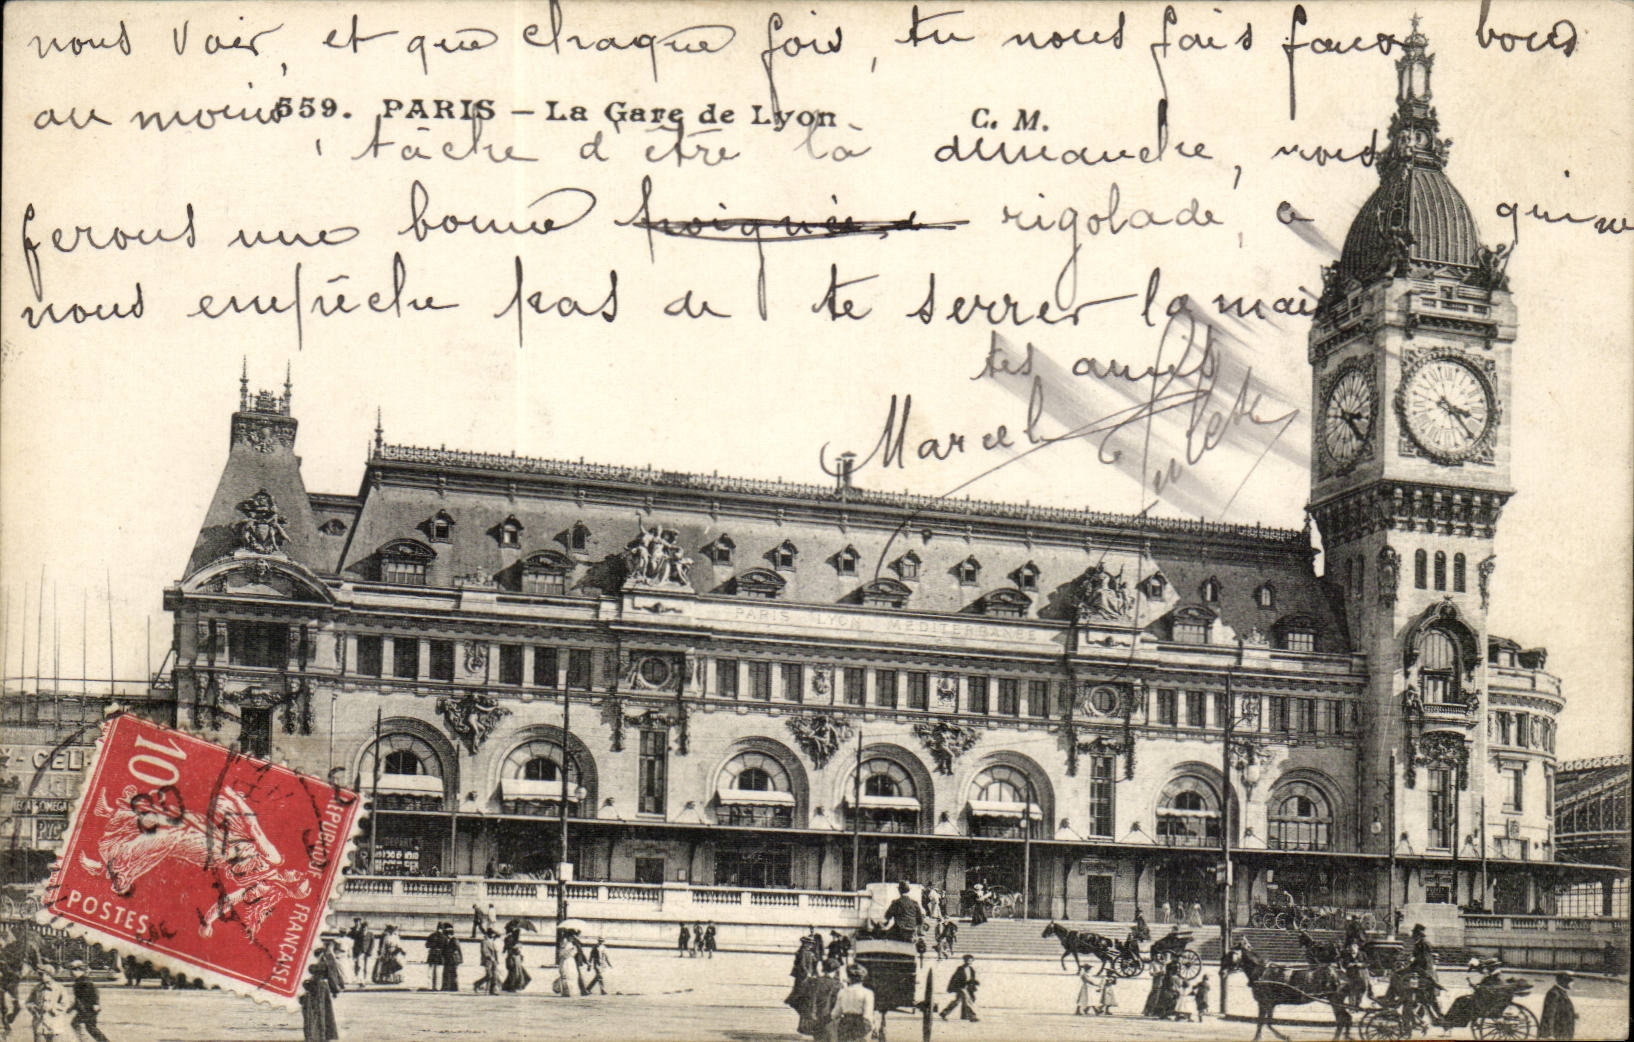 nous voir, et que chaque fois, tu nous fais faux bond
au moins
559. PARIS – La Gare de Lyon C. M.
tâche d'être là dimanche, nous
ferons une bonne poignée d rigolade, ce qui ne
nous empêche pas de te serrer la main
tes amis
Marcel
PARIS LYON MEDITERRANEE
10c
POSTES
REPUBLIQUE FRANÇAISE